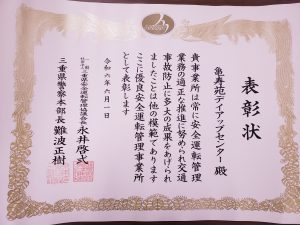 表彰状
亀寿苑デイアップセンター 殿
貴事業所は常に安全運転管理
業務の適正な推進に努められ交通
事故防止に多大の成果をあげられ
ましたことは他の模範であります
ここに優良安全運転管理事業所
として表彰します
令和六年六月一日
三重県安全運転管理協議会会長 永井啓弌
三重県警察本部長 難波正樹